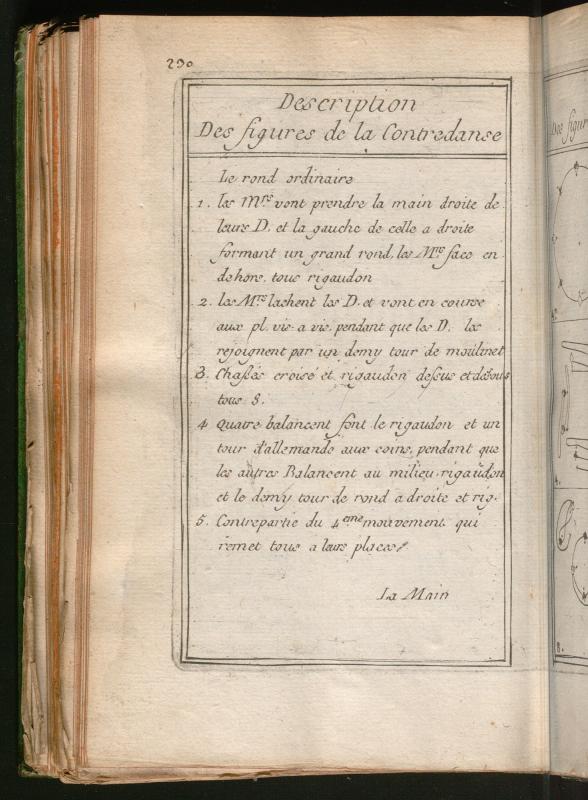 230
Description
Des figures de la Contredanse
Le rond ordinaire
1. les Mrs vont prendre la main droite de
leurs D. et la gauche de celle a droite
formant un grand rond, les Mrs face en
dehors, tous rigaudon
2. les Mrs lachent les D. et vont en course
aux pl. vis a vis, pendant que les D. les
rejoignent par un demy tour de moulinet
3. Chassés croisé et rigaudon dessus et dessous
tous 8.
4 Quatre balancent font le rigaudon et un
tour d'allemande aux coins, pendant que
les autres Balancent au milieu, rigaudon
et le demy tour de rond a droite et rig.
5. Contrepartie du 4eme mouvement qui
remet tous a leurs places
La Main
Des figur